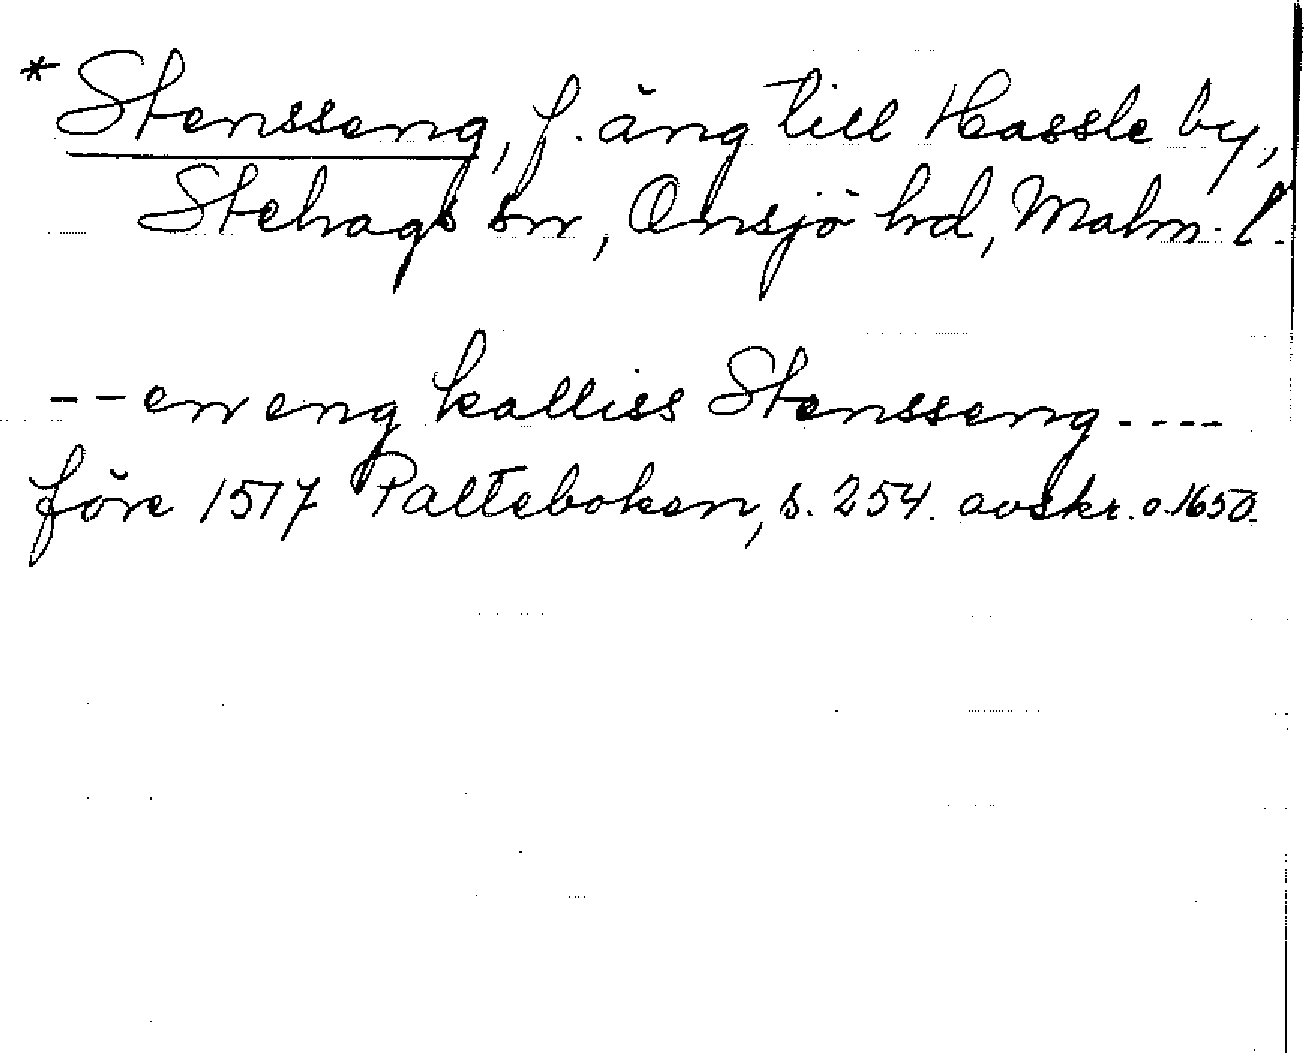 * Stensseng, f. äng till Hassle by,
Stehags sn, Onsjö hd, Malm. l.
-- en eng kalliss Stensseng ----
före 1517 Palteboken, s. 254. avskr. o. 1650.